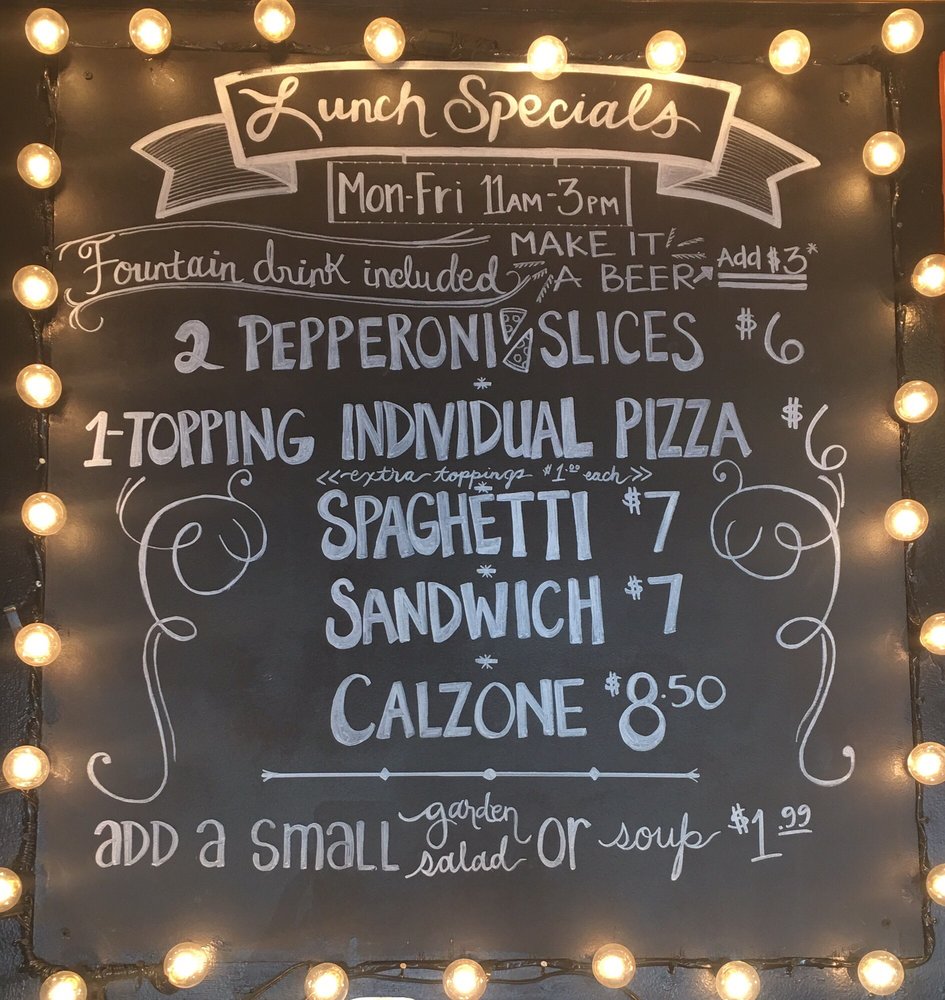 Lunch Specials
Mon-Fri 11AM-3PM
Fountain drink included MAKE IT A BEER Add $3*
2 PEPPERONI SLICES $6
*
1-TOPPING INDIVIDUAL PIZZA $6
<<extra toppings $1.00 each>>
*
SPAGHETTI $7
*
SANDWICH $7
*
CALZONE $8.50
ADD A SMALL garden salad OR soup $1.99